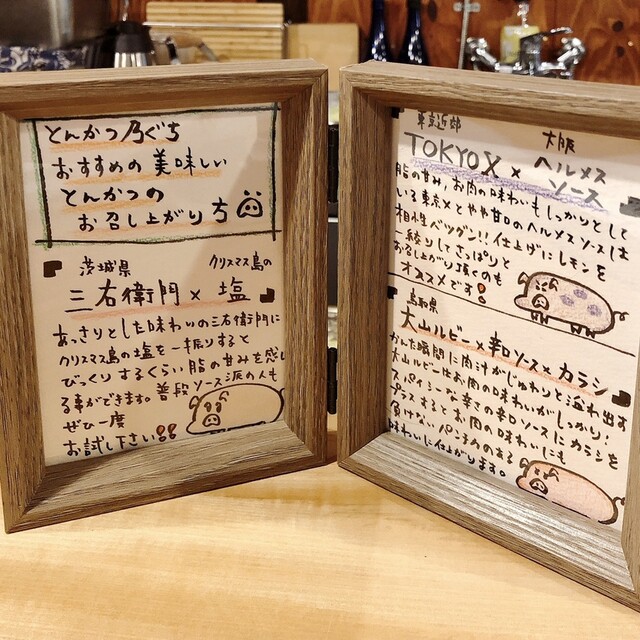 とんかつ乃ぐち
おすすめの美味しい
とんかつの
お召し上がり方
茨城県 クリスマス島の
三右衛門 × 塩
あっさりとした味わいの三右衛門に
クリスマス島の塩を一振りすると
びっくりするくらい脂の甘みを感じ
る事ができます。普段ソース派の人も
ぜひ一度
お試し下さい!!
東京近郊 大阪
TOKYO X × ヘルメス
ソース
脂の甘み、お肉の味わいもしっかりとして
いる東京Xとやや甘口のヘルメスソースは
相性バツグン!!仕上げにレモンを
一絞りしてさっぱりと
お召し上がり頂くのも
オススメです!
鳥取県
大山ルビー×辛口ソース×カラシ
かんだ瞬間に肉汁がじゅわりと溢れ出す
大山ルビーはお肉の味わいがしっかり!
スパイシーな辛さの辛口ソースにカラシを
プラスするとお肉の味わいにも
負けないパンチ力のある
味わいに仕上がります。